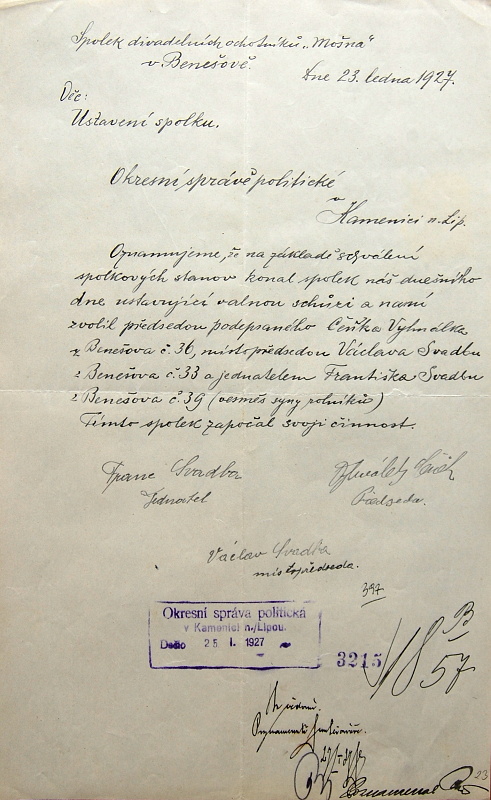 Spolek divadelních ochotníků „Mošna“
v Benešově.
Dne 23. ledna 1927.
Věc:
Ustavení spolku.
Okresní správě politické
v
Kamenici n. Lip.
Oznamujeme, že na základě schválení
spolkových stanov konal spolek náš dnešního
dne ustavující valnou schůzi a na ní
zvolil předsedou podepsaného Čeňka Vyhnálka
z Benešova č. 36, místopředsedou Václava Svadbu
z Benešova č. 33 a jednatelem Františka Svadbu
z Benešova č. 39 (vesměs syny rolníků)
Tímto spolek započal svoji činnost.
Franc Svadba
Jednatel
Předseda.
Václav Svadba
místopředseda.
397
Okresní správa politická
v Kamenici n./Lipou.
Došlo 25 I. 1927
3215
18 B
57
23